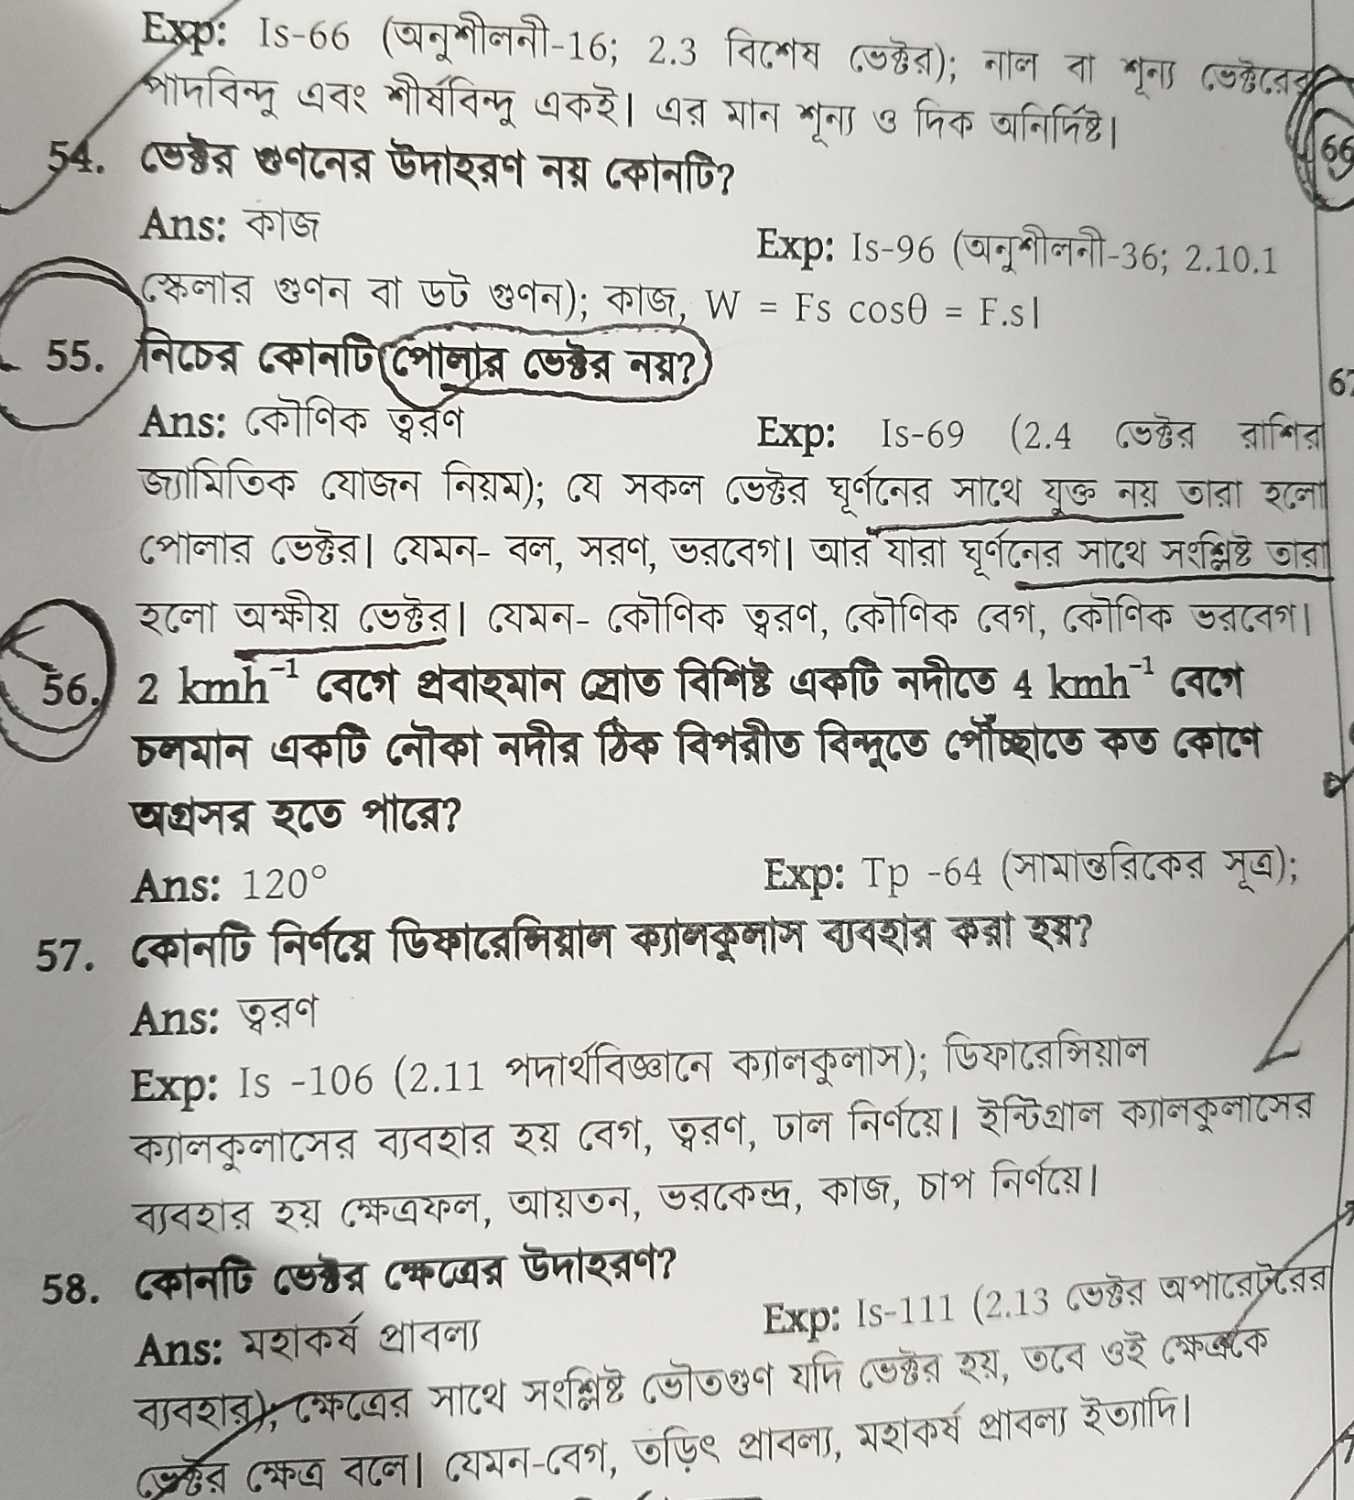 Exp: Is-66 (অনুশীলনী-16; 2.3 বিশেষ ভেক্টর); নাল বা শূন্য ভেক্টরের
পাদবিন্দু এবং শীর্ষবিন্দু একই। এর মান শূন্য ও দিক অনির্দিষ্ট।
66
54. ভেক্টর গুণনের উদাহরণ নয় কোনটি?
Ans: কাজ
Exp: Is-96 (অনুশীলনী-36; 2.10.1
স্কেলার গুণন বা ডট গুণন); কাজ, W = Fs cosθ = F.s।
55. নিচের কোনটি পোলার ভেক্টর নয়?
67
Ans: কৌণিক ত্বরণ
Exp: Is-69 (2.4 ভেক্টর রাশির
জ্যামিতিক যোজন নিয়ম); যে সকল ভেক্টর ঘূর্ণনের সাথে যুক্ত নয় তারা হলো
পোলার ভেক্টর। যেমন- বল, সরণ, ভরবেগ। আর যারা ঘূর্ণনের সাথে সংশ্লিষ্ট তারা
হলো অক্ষীয় ভেক্টর। যেমন- কৌণিক ত্বরণ, কৌণিক বেগ, কৌণিক ভরবেগ।
56. 2 kmh⁻¹ বেগে প্রবাহমান স্রোত বিশিষ্ট একটি নদীতে 4 kmh⁻¹ বেগে
চলমান একটি নৌকা নদীর ঠিক বিপরীত বিন্দুতে পৌঁছাতে কত কোণে
অগ্রসর হতে পারে?
Ans: 120°
Exp: Tp -64 (সামান্তরিকের সূত্র);
57. কোনটি নির্ণয়ে ডিফারেন্সিয়াল ক্যালকুলাস ব্যবহার করা হয়?
Ans: ত্বরণ
Exp: Is -106 (2.11 পদার্থবিজ্ঞানে ক্যালকুলাস); ডিফারেন্সিয়াল
ক্যালকুলাসের ব্যবহার হয় বেগ, ত্বরণ, ঢাল নির্ণয়ে। ইন্টিগ্রাল ক্যালকুলাসের
ব্যবহার হয় ক্ষেত্রফল, আয়তন, ভরকেন্দ্র, কাজ, চাপ নির্ণয়ে।
58. কোনটি ভেক্টর ক্ষেত্রের উদাহরণ?
Ans: মহাকর্ষ প্রাবল্য
Exp: Is-111 (2.13 ভেক্টর অপারেটরের
ব্যবহার); ক্ষেত্রের সাথে সংশ্লিষ্ট ভৌতগুণ যদি ভেক্টর হয়, তবে ওই ক্ষেত্রকে
ভেক্টর ক্ষেত্র বলে। যেমন-বেগ, তড়িৎ প্রাবল্য, মহাকর্ষ প্রাবল্য ইত্যাদি।